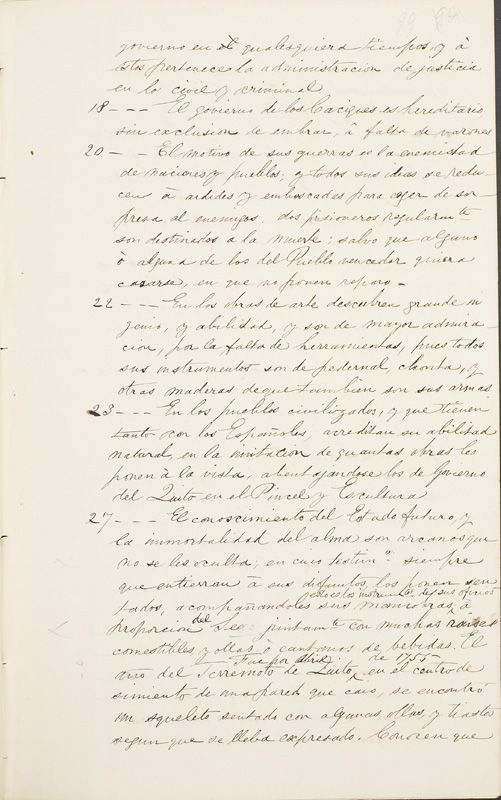 99
govierno en qualesquiera tiempos, y à
estos pertenece la administracion de justicia
en lo civil y criminal
18 - - - El govierno de los Caciques es hereditario
sin exclusion de embras, à falta de varones
20 - - El motivo de sus guerras es la enemistad
de naciones y pueblos; y todas sus ideas se redu-
cen à ardides y emboscadas para coger de sor-
presa al enemigo, dos prisioneros regularmte
son destinados a la muerte; salvo que alguno
ò alguna de los del Pueblo vencedor quiera
casarse, en que no ponen reparo -
22 - - - En las obras de arte descubren grande in
genio, y abilidad, y son de mayor admira
cion, por la falta de herramientas, pues todos
sus instrumentos son de pedernal, chonta, y
otras maderas de que tambien son sus armas
23 - - - En los pueblos civilizados, y que tienen
tanto con los Españoles, acreditan su abilidad
natural, en la imitacion de quantas obras les
ponen à la vista, abentajandose los de Govierno
del Quito en el Pincel y Escultura
27 - - - El conoscimiento del Estado futuro, y
la immortalidad del alma son arcanos que
no se les oculta; en cuio testimo. siempre
que entierran à sus difuntos, los ponen sen
tados, acompañandoles sus maniobras, à
ò de los instrumtos de sus oficios
proporcion del Sexo juntamte con muchas
comestibles, y ollas ò cantaros de bebidas. El
Fue por Abril de 1755
año del Terremoto de Quito, en el centro de
simiento de una pared que caio, se encontró
un squeleto sentado con algunas ollas, y trastos
segun que se lleba expresado. Conocen que